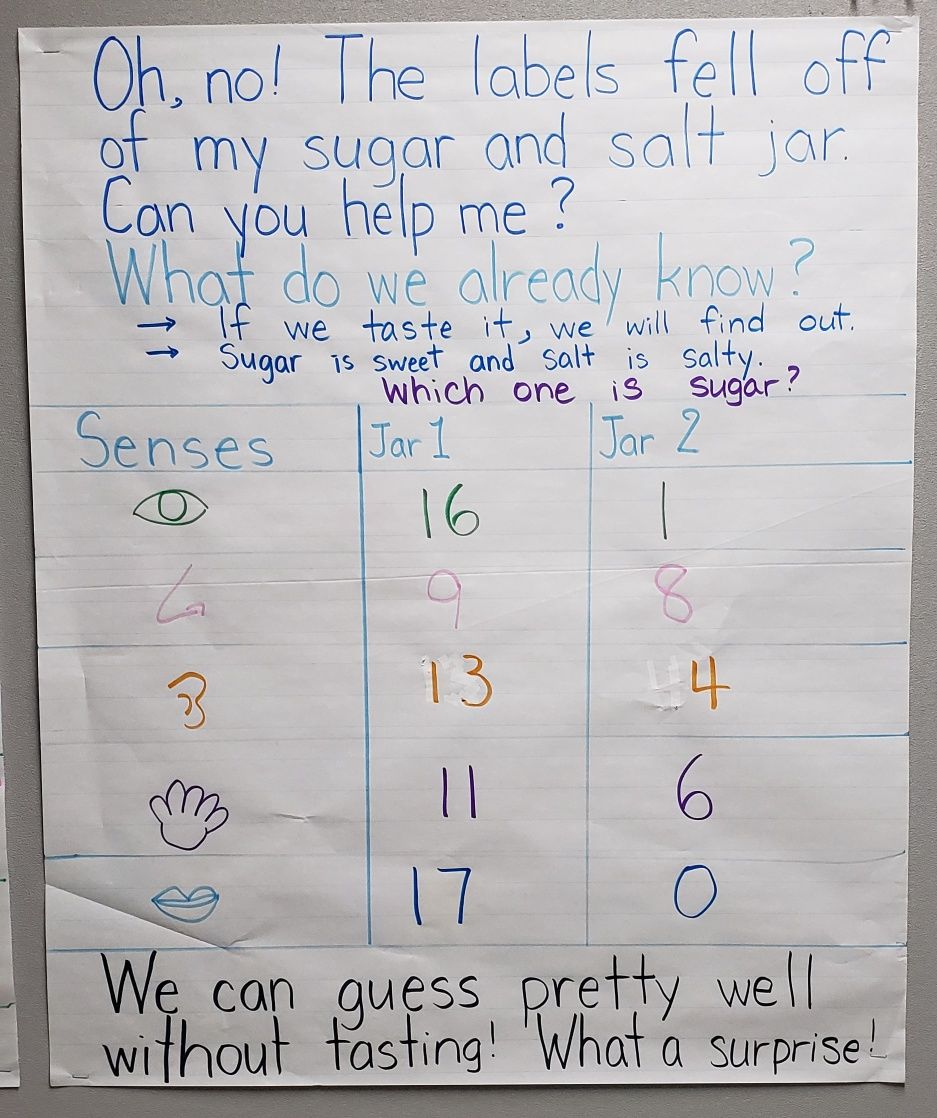 Oh, no! The labels fell off
of my sugar and salt jar.
Can you help me?
What do we already know?
→ If we taste it, we will find out.
→ Sugar is sweet and salt is salty.
Which one is sugar?
Senses Jar 1 Jar 2
16 1
9 8
13 4
11 6
17 0
We can guess pretty well
without tasting! What a surprise!